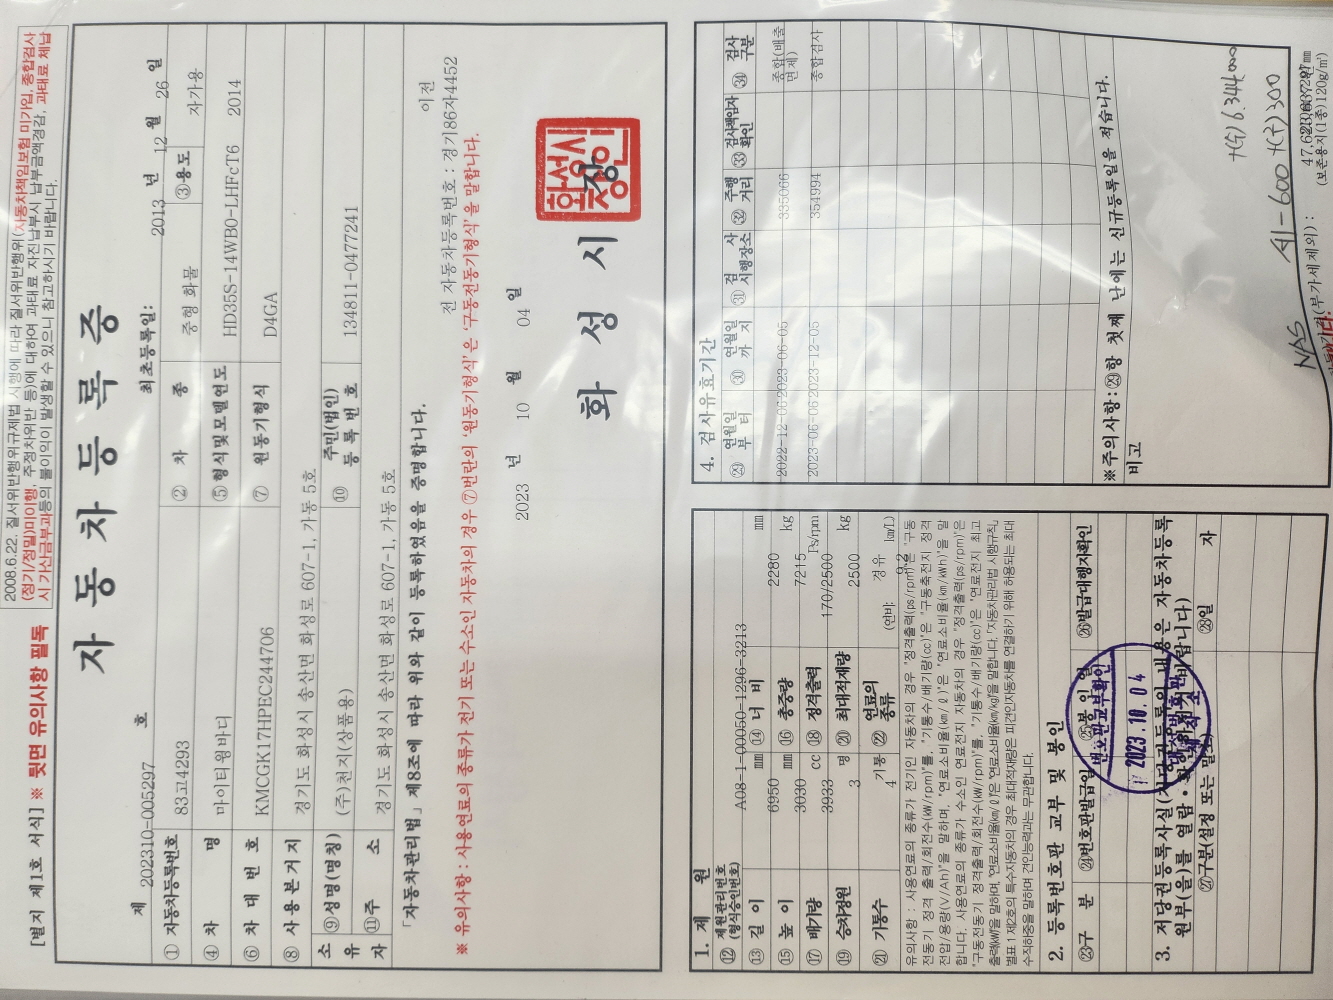 [별지 제1호 서식] ※ 뒷면 유의사항 필독
2008.6.22. 질서위반행위규제법 시행에 따라 질서위반행위(자동차책임보험 미가입, 종합검사
(정기/정밀)미이행, 주정차위반 등)에 대하여 과태료 자진납부시 납부금액경감, 과태료 체납
시 가산금부과등의 불이익이 발생할 수 있으니 참고하시기 바랍니다.
자 동 차 등 록 증
제 202310-005297 호
최초등록일: 2013 년 12 월 26 일
① 자동차등록번호 83고4293 ② 차 종 중형 화물 ③용도 자가용
④ 차 명 마이티윙바디 ⑤형식및모델연도 HD35S-14WB0-LHFcT6 2014
⑥ 차 대 번 호 KMCGK17HPEC244706 ⑦ 원동기형식 D4GA
⑧ 사용본거지 경기도 화성시 송산면 화성로 607-1, 가동 5호
소유자 ⑨성명(명칭) (주)천지(상품용) ⑩ 주민(법인)등록번호 134811-0477241
⑪주 소 경기도 화성시 송산면 화성로 607-1, 가동 5호
「자동차관리법」 제8조에 따라 위와 같이 등록하였음을 증명합니다.
이전
전 자동차등록번호 : 경기86자4452
※ 유의사항 : 사용연료의 종류가 전기 또는 수소인 자동차의 경우 ⑦번란의 '원동기형식'은 '구동전동기형식'을 말합니다.
2023 년 10 월 04 일
화 성 시 장
화성시장인
1. 제 원
⑫ 제원관리번호(형식승인번호) A08-1-00050-1296-3213
⑬ 길 이 6950 mm ⑭ 너 비 2280 mm
⑮ 높 이 3030 mm ⑯ 총중량 7215 kg
⑰ 배기량 3933 cc ⑱ 정격출력 170/2500 Ps/rpm
⑲ 승차정원 3 명 ⑳ 최대적재량 2500 kg
㉑ 기통수 4 기통 ㉒ 연료의 종류 경유 (연비: 9.2 km/L)
유의사항 : 사용연료의 종류가 전기인 자동차의 경우 "정격출력(ps/rpm)"은 "구동
전동기 정격 출력/회전수(kW/rpm)"를, "기통수/배기량(cc)"은 "구동축전지 정격
전압/용량(V/Ah)"을 말하며, "연료소비율(km/ℓ)"은 "연료소비율(km/kWh)"을 말
합니다. 사용연료의 종류가 수소인 연료전지 자동차의 경우 "정격출력(ps/rpm)"은
"구동전동기 정격출력/회전수(kW/rpm)"를, "기통수/배기량(cc)"은 "연료전지 최고
출력(kW)"을 말하며, "연료소비율(km/ℓ)"은 "연료소비율(km/kg)"을 말합니다. 「자동차관리법 시행규칙」
별표 1 제2호의 특수자동차의 경우 최대적재량은 피견인자동차를 연결하기 위해 허용되는 최대
수직하중을 말하며 견인능력과는 무관합니다.
2. 등록번호판 교부 및 봉인
㉓구 분 ㉔번호판발급일 ㉕봉 인 일 ㉖발급대행자확인
번호판교부확인
2023. 10. 04
3. 저당권등록사실(저당권등록의 내용은 자동차등록
원부(을)를 열람・확인하시기 바랍니다)
㉗구분(설정 또는 말소) ㉘일 자
4. 검사유효기간
㉙ 연월일부터 ㉚ 연월일까지 ㉛ 검사시행장소 ㉜ 주행거리 ㉝ 검사책임자확인 ㉞ 검사구분
2022-12-06 2023-06-05 335066 종합(배출면제)
2023-06-06 2023-12-05 354994 종합검사
※주의사항:㉙항 첫째 난에는 신규등록일을 적습니다.
비고
(부가세제외) :
(보존용지(1종)120g/㎡)